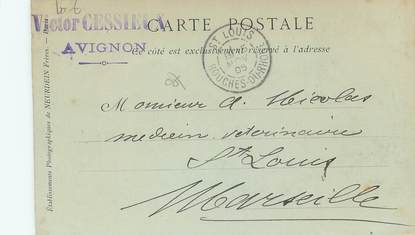 Victor CESSILLA
AVIGNON
CARTE POSTALE
Ce côté est exclusivement réservé à l'adresse
ST LOUIS
05
BOUCHES-DU-RHONE
Etablissements Photographiques de NEURDEIN Frères. — Paris
Monsieur A. Nicolas
medecin veterinaire
St Louis
Marseille